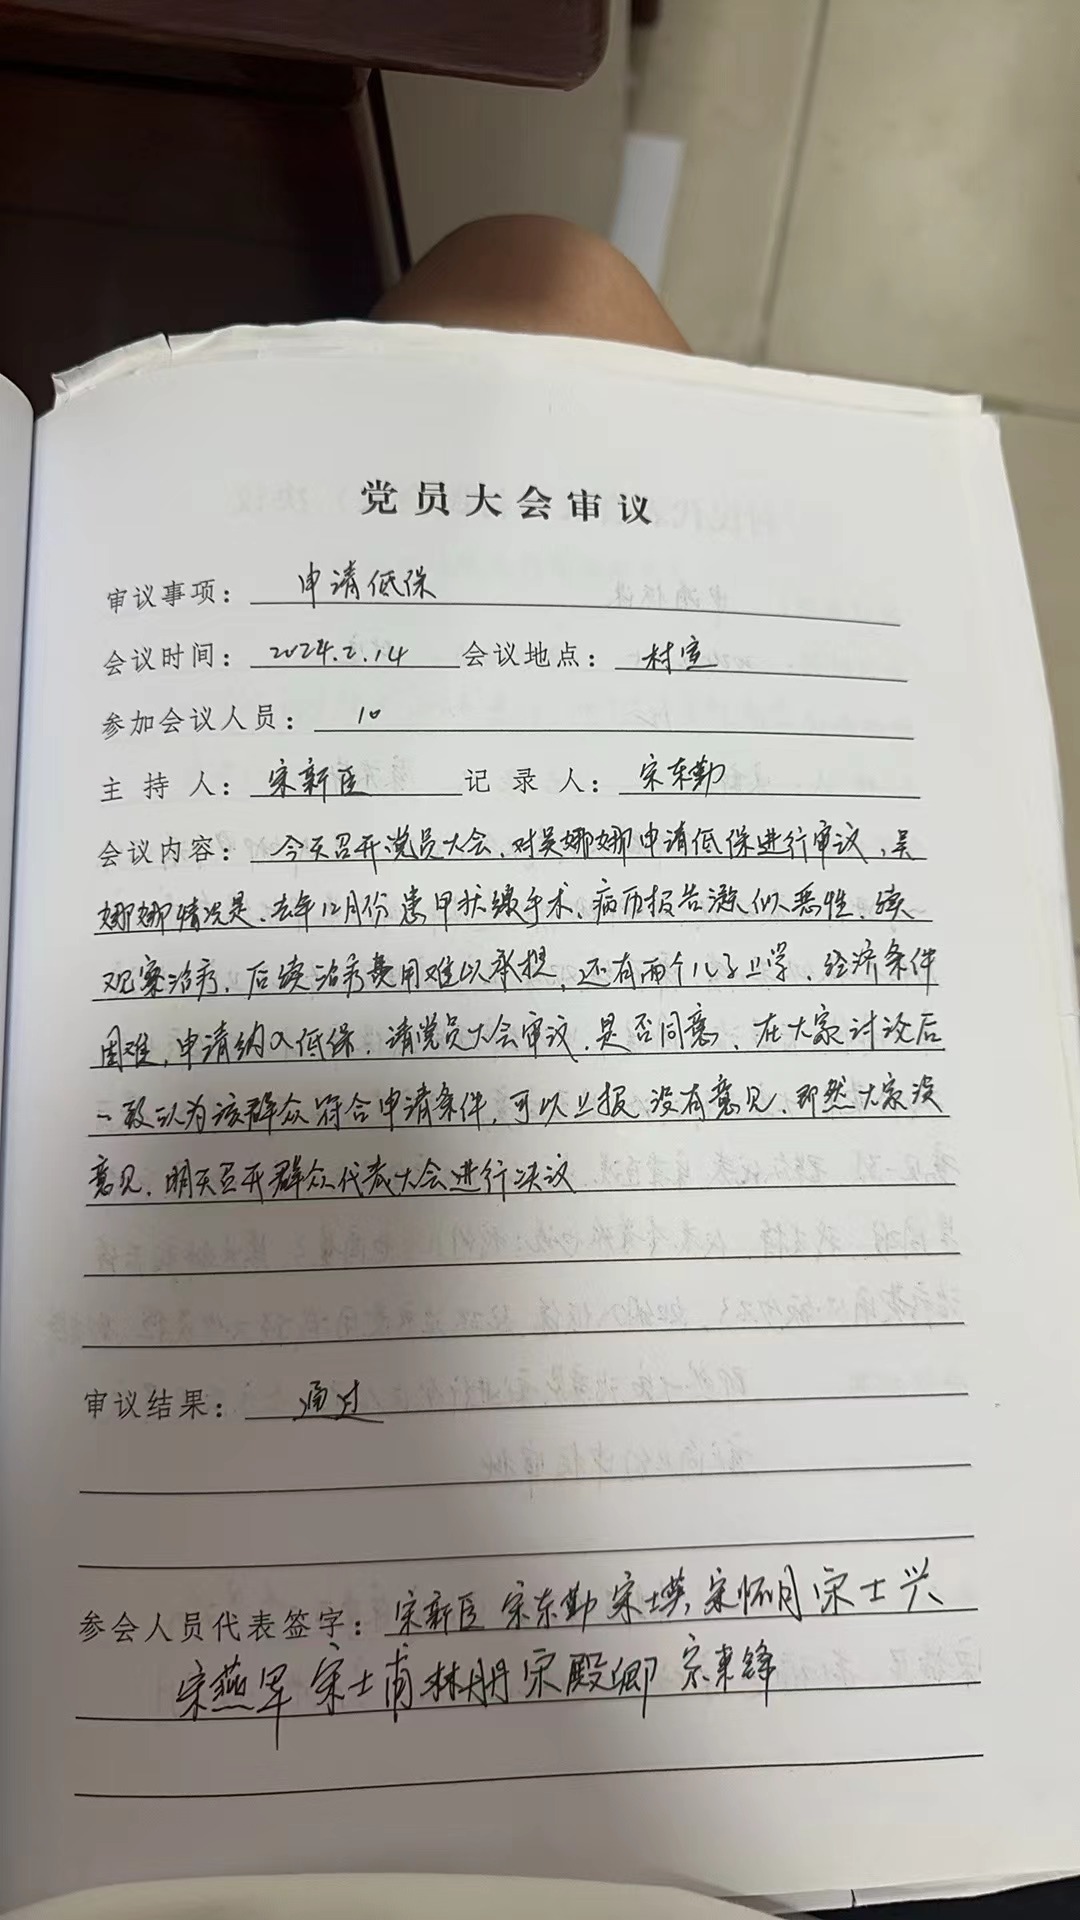 党员大会审议
审议事项：申请低保
会议时间：2024.2.14 会议地点：村室
参加会议人员：10
主持人：宋新臣 记录人：宋东勤
会议内容：今天召开党员大会，对吴娜娜申请低保进行审议，吴
娜娜情况是，去年12月份患甲状腺手术，病历报告疑似恶性，续
观察治疗，后续治疗费用难以承担，还有两个儿子上学，经济条件
困难，申请纳入低保，请党员大会审议，是否同意，在大家讨论后
一致认为该群众符合申请条件，可以上报，没有意见，那然大家没
意见，明天召开群众代表大会进行决议
审议结果：通过
参会人员代表签字：宋新臣 宋东勤 宋 宋怀月 宋士兴
宋燕军 宋士甫 林朋 宋殿卿 宋東锋